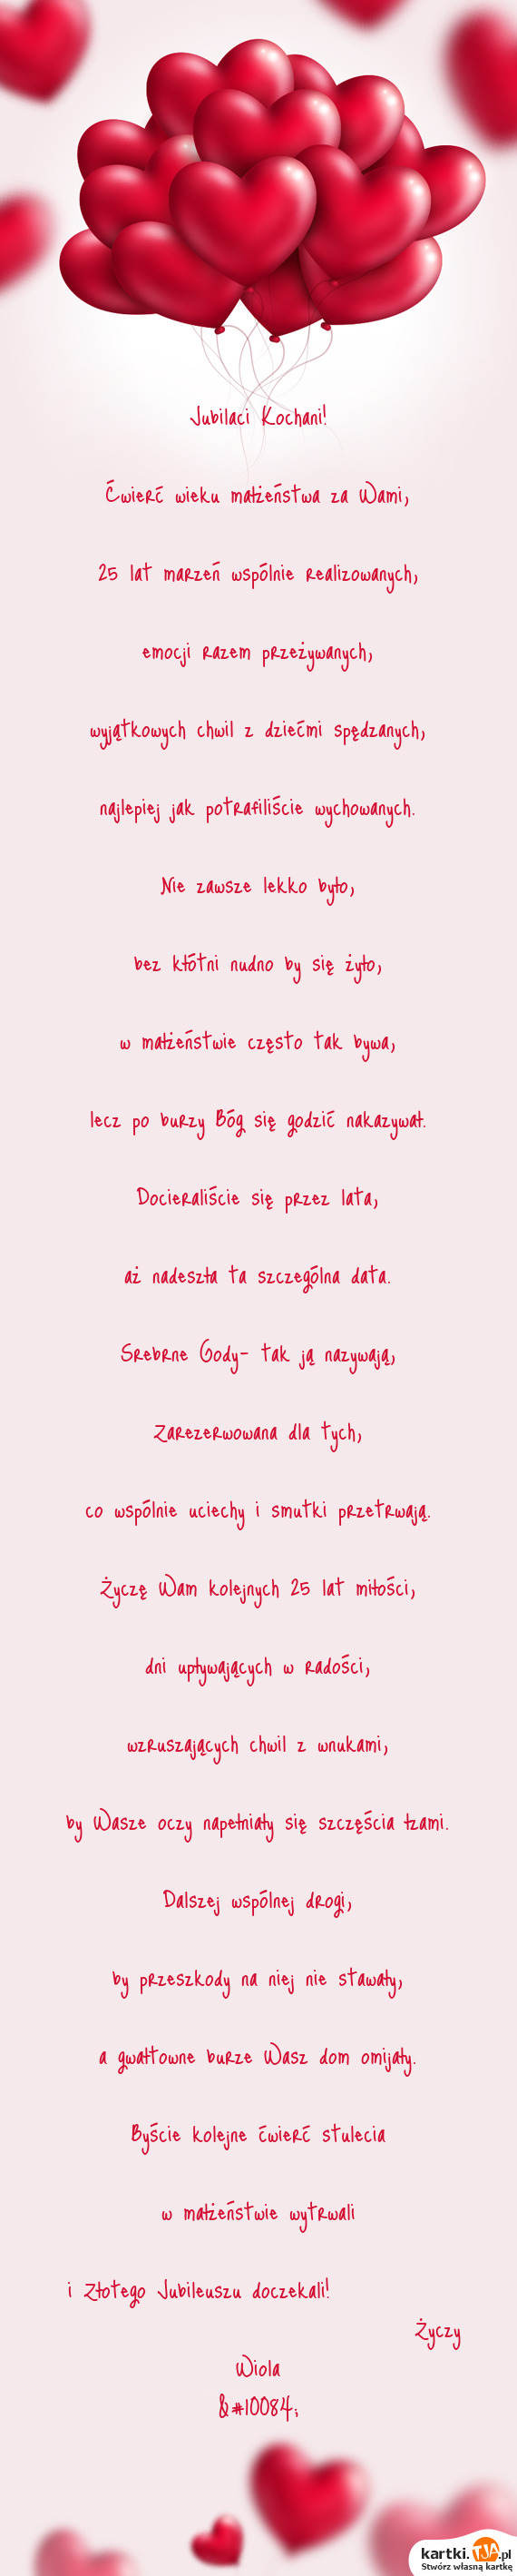 Jubilaci Kochani!
Ćwierć wieku małżeństwa za Wami,
25 lat marzeń wspólnie realizowanych,
emocji razem przeżywanych,
wyjątkowych chwil z dziećmi spędzanych,
najlepiej jak potrafiliście wychowanych.
Nie zawsze lekko było,
bez kłótni nudno by się żyło,
w małżeństwie często tak bywa,
lecz po burzy Bóg się godzić nakazywał.
Docieraliście się przez lata,
aż nadeszła ta szczególna data.
Srebrne Gody- tak ją nazywają,
Zarezerwowana dla tych,
co wspólnie uciechy i smutki przetrwają.
Życzę Wam kolejnych 25 lat miłości,
dni upływających w radości,
wzruszających chwil z wnukami,
by Wasze oczy napełniały się szczęścia łzami.
Dalszej wspólnej drogi,
by przeszkody na niej nie stawały,
a gwałtowne burze Wasz dom omijały.
Byście kolejne ćwierć stulecia
w małżeństwie wytrwali
i Złotego Jubileuszu doczekali!
Życzy
Wiola
&#10084;
kartki.TJA.pl
Stwórz własną kartkę